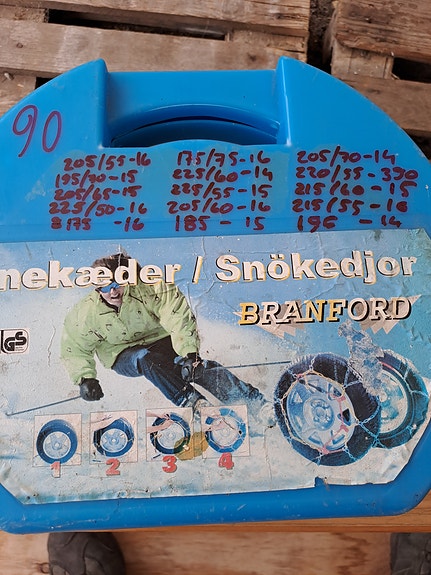 90
205/55-16 175/75-16 205/70-14
195/70-15 225/60-14 220/55-390
205/65-15 225/55-15 215/60-15
225/50-16 205/60-16 215/55-16
B175 -16 185 - 15 196 - 14
nekæder / Snökedjor
BRANFORD
GS
1 2 3 4